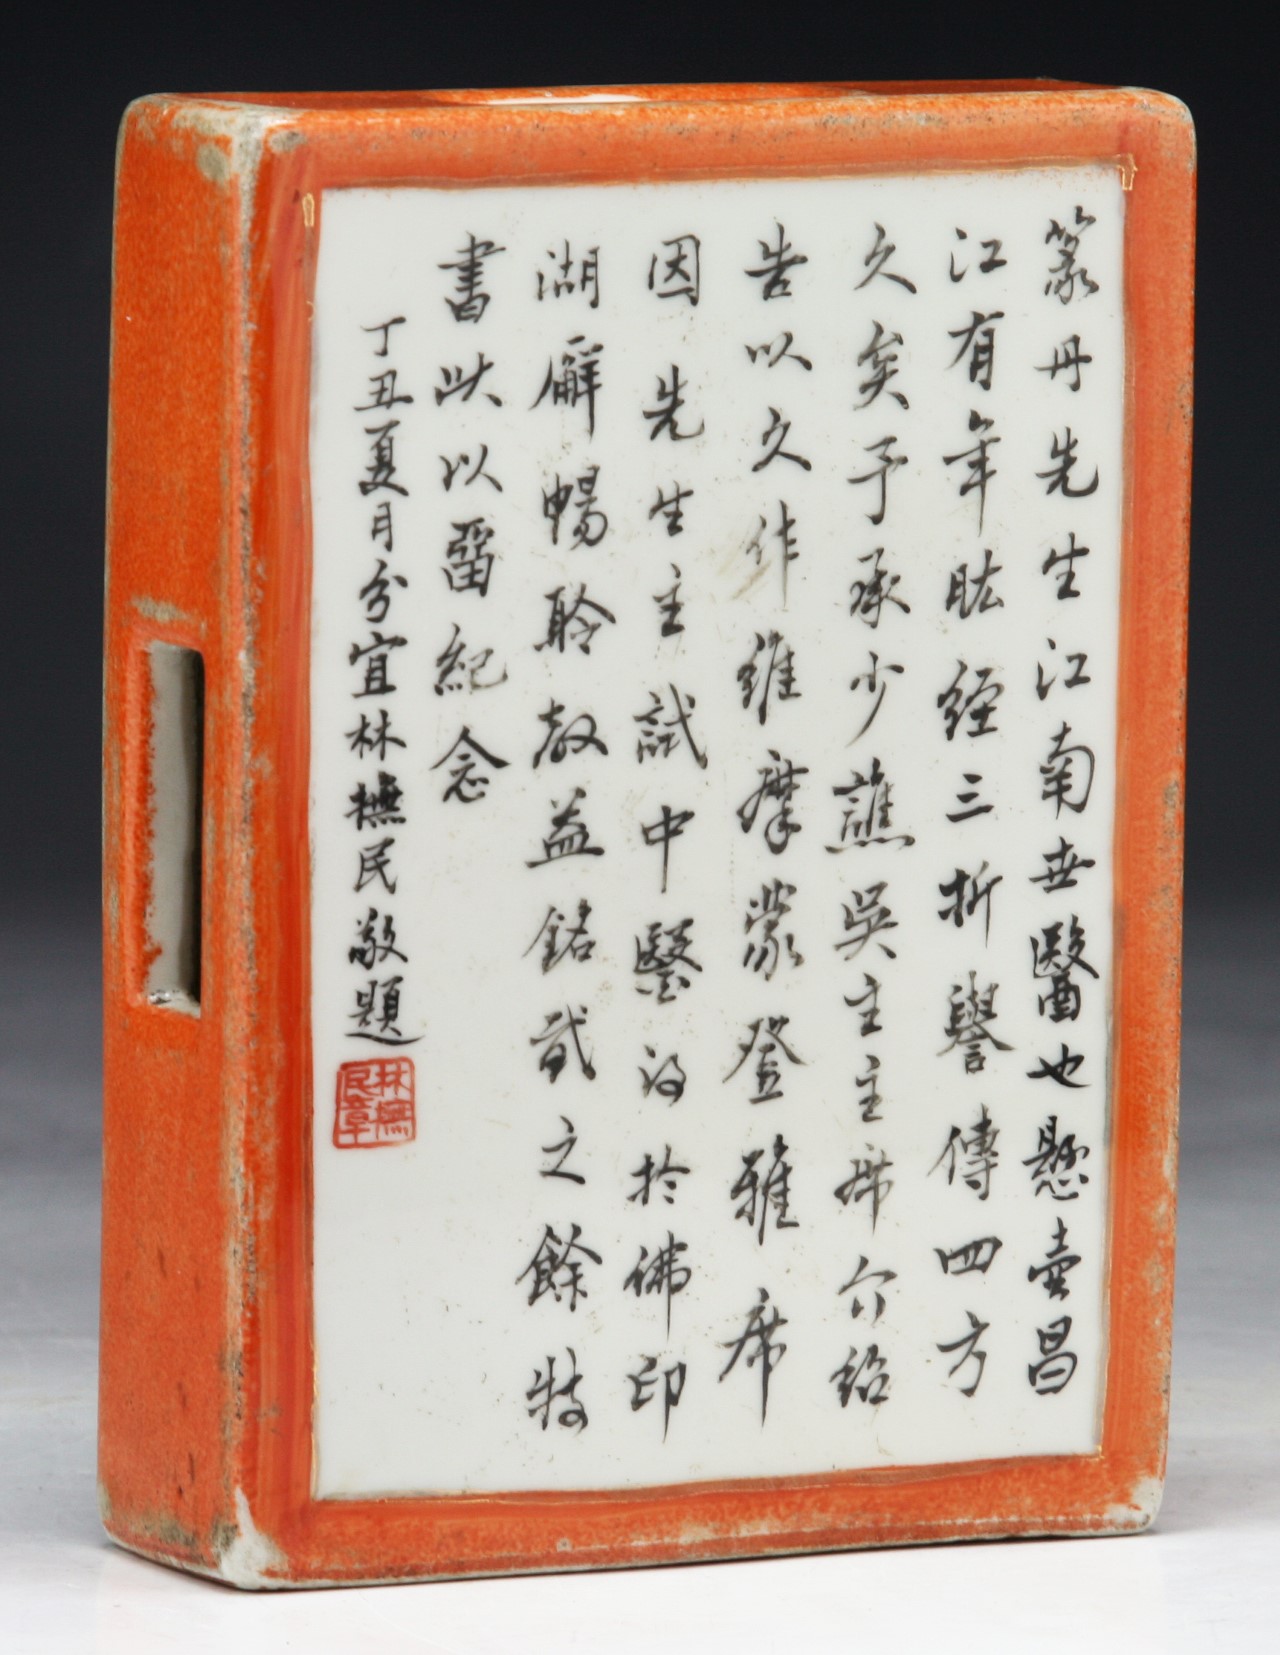 篆丹先生江南世醫也懸壺昌
江有年肱經三折譽傳四方
久矣予承少譙吳主主席介紹
告以久作維摩蒙登雅席
因先生主試中醫設於佛印
湖廨暢聆教益銘貳之餘特
書此以留紀念
丁丑夏月分宜林撫民敬題
林撫民章